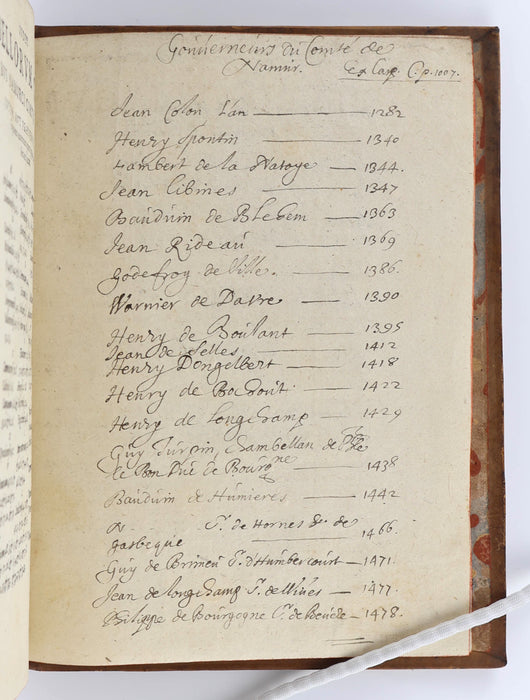 Gouverneurs du Comté de
Namur.
Ex Carp. C. p. 1007.
Jean Colon L'an 1282
Henry Spontin 1340
Lambert de la Natoye 1344.
Jean Libines 1347
Bauduin de Blehem 1363
Jean Rideau 1369
Godefroy de Ville. 1386.
Warnier de Davre 1390
Henry de Boulant 1395
Jean de Selles 1412
Henry Dongelbert 1418
Henry de 1422
Henry de Longchamp 1429
Guy Turpin, Chambellan de
le Bon Duc de Bourgne 1438
Bauduin de Humieres 1442
N. Sr. de Hornes &r. de
Gasbeque 1466.
Guy de Brimeu Sr. d'Humbercourt 1471.
Jean de Longchamp Sr. de 1477.
Philippe de Bourgogne Sr. de 1478.